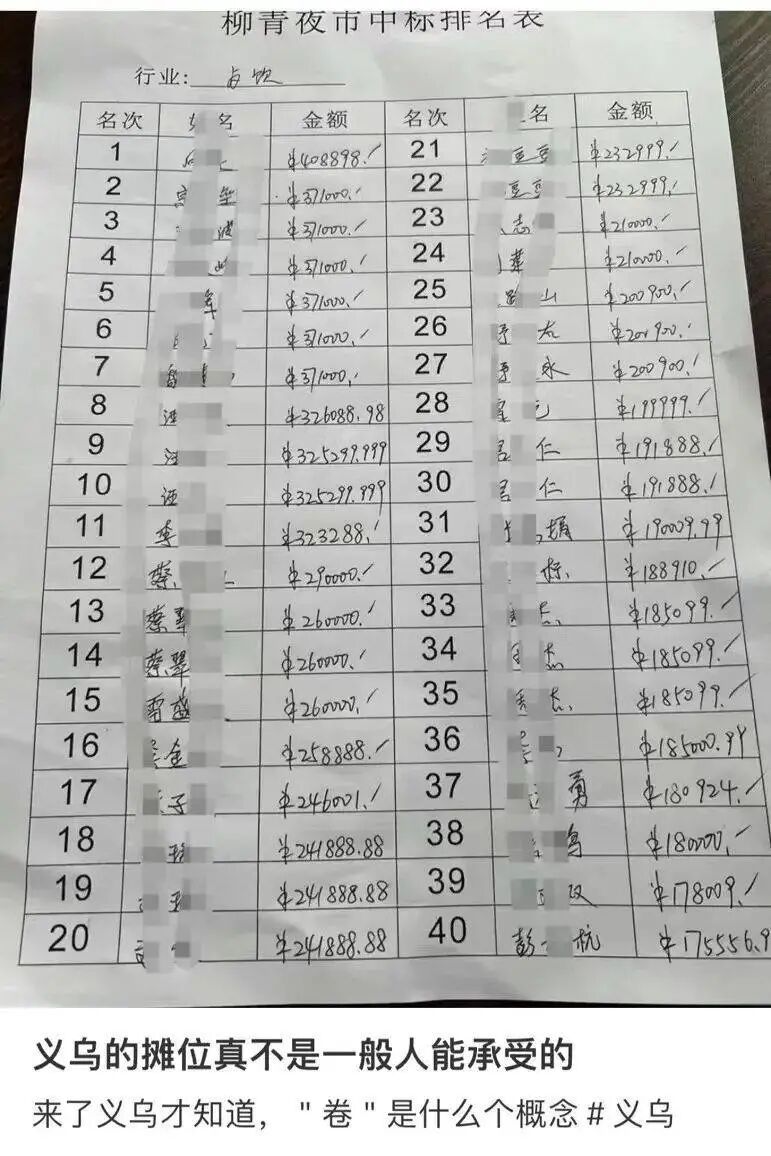 柳青夜市中标排名表
行业:
名次 名 金额 名次 名 金额
1 ¥408898./ 21 豆豆 ¥232999./
2 ¥371000./ 22 豆豆 ¥232999./
3 波 ¥371000./ 23 志 ¥210000./
4 ¥371000./ 24 ¥210000./
5 军 ¥371000./ 25 山 ¥200900./
6 ¥371000./ 26 ¥200900./
7 ¥371000./ 27 永 ¥200900./
8 汪 ¥326088.98 28 ¥199999./
9 汪 ¥325299.999 29 吕 仁 ¥191888./
10 汪 ¥325299.999 30 吕 仁 ¥191888./
11 李 ¥323288./ 31 ¥190009.99
12 蔡 ¥290000./ 32 标 ¥188910./
13 蔡翠 ¥260000./ 33 杰 ¥185099./
14 蔡翠 ¥260000./ 34 杰 ¥185099./
15 雷 ¥260000./ 35 杰 ¥185099./
16 金 ¥258888./ 36 ¥185000.99
17 子 ¥246001./ 37 勇 ¥180924./
18 ¥241888.88 38 ¥180000./
19 ¥241888.88 39 ¥178009./
20 ¥241888.88 40 彭 杭 ¥175556.9
义乌的摊位真不是一般人能承受的
来了义乌才知道，"卷"是什么个概念#义乌